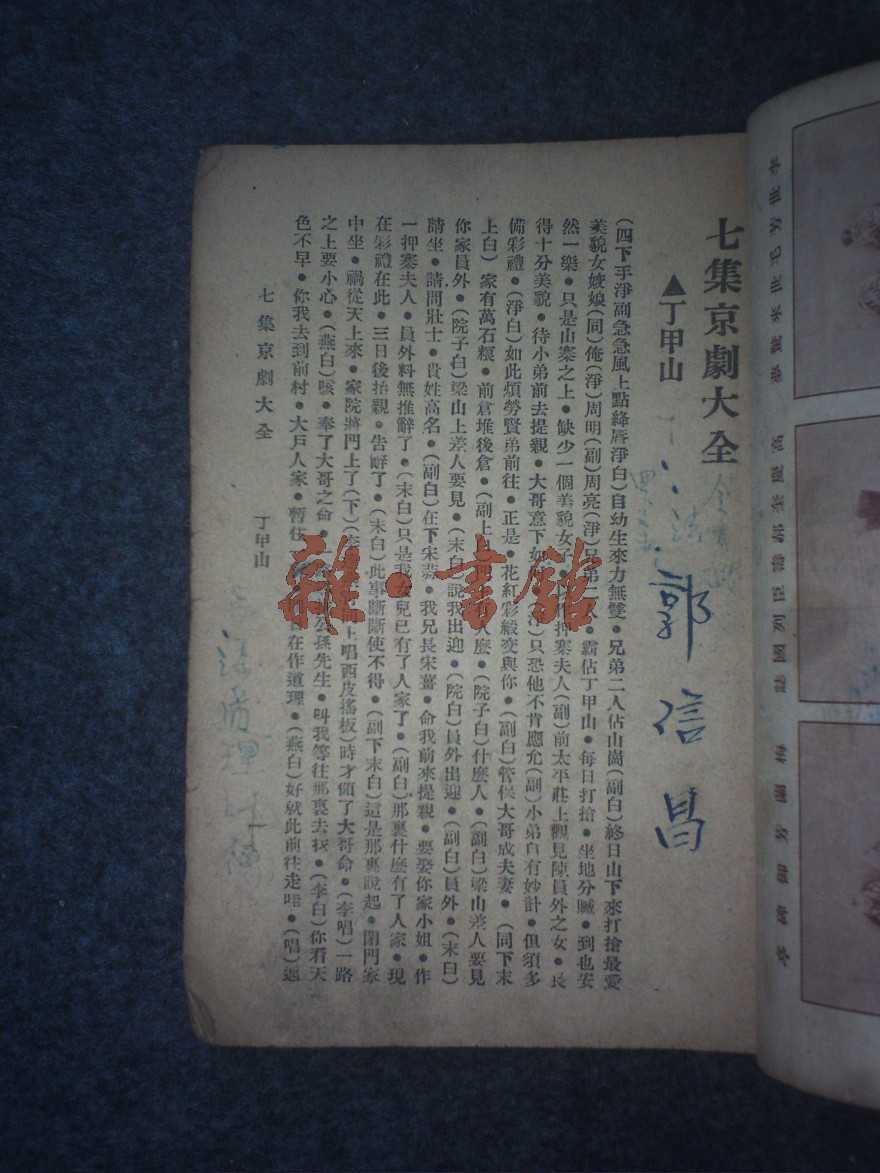 七集京劇大全
▲丁甲山
郭信昌
(四下手淨副急急風上點絳唇淨白)自幼生來力無雙●兄弟二人佔山崗(副白)終日山下來打搶最愛
美貌女嫂娘(同)俺(淨)周明(副)周亮(淨)兄弟二人●霸佔丁甲山●每日打搶●坐地分贓●到也安
然一樂●只是山寨之上●缺少一個美貌女子 押寨夫人(副)前太平莊上觀見陳員外之女●長
得十分美貌●待小弟前去提親●大哥意下如 (淨)只恐他不肯應允(副)小弟自有妙計●但須多
備彩禮●(淨白)如此煩勞賢弟前往●正是●花紅彩緞交與你●(副白)管保大哥成夫妻●(同下末
上白)家有萬石糧●前倉堆後倉●(副上白)門上有人麼●(院子白)什麼人●(副白)梁山差人要見
你家員外●(院子白)梁山上差人要見●(末白)說我出迎●(院白)員外出迎●(副白)員外●(末白)
請坐●請問壯士●貴姓高名●(副白)在下宋蒜●我兄長宋薑●命我前來提親●要娶你家小姐●作
一押寨夫人●員外料無推辭了●(末白)只是我女兒已有了人家了●(副白)那裏什麼有了人家●現
在彩禮在此●三日後抬親●告辭了●(末白)此事斷斷使不得●(副下末白)這是那裏說起●閉門家
中坐●禍從天上來●家院將門上了(下)(李 上唱西皮搖板)時才領了大哥命●(李唱)一路
之上要小心●(燕白)咳●奉了大哥之命● 公孫先生●叫我等往那裏去找●(李白)你看天
色不早●你我去到前村●大戶人家●暫住 在作道理●(燕白)好就此前往走哇●(唱)邁
七集京劇大全 丁甲山 一
雜·書館